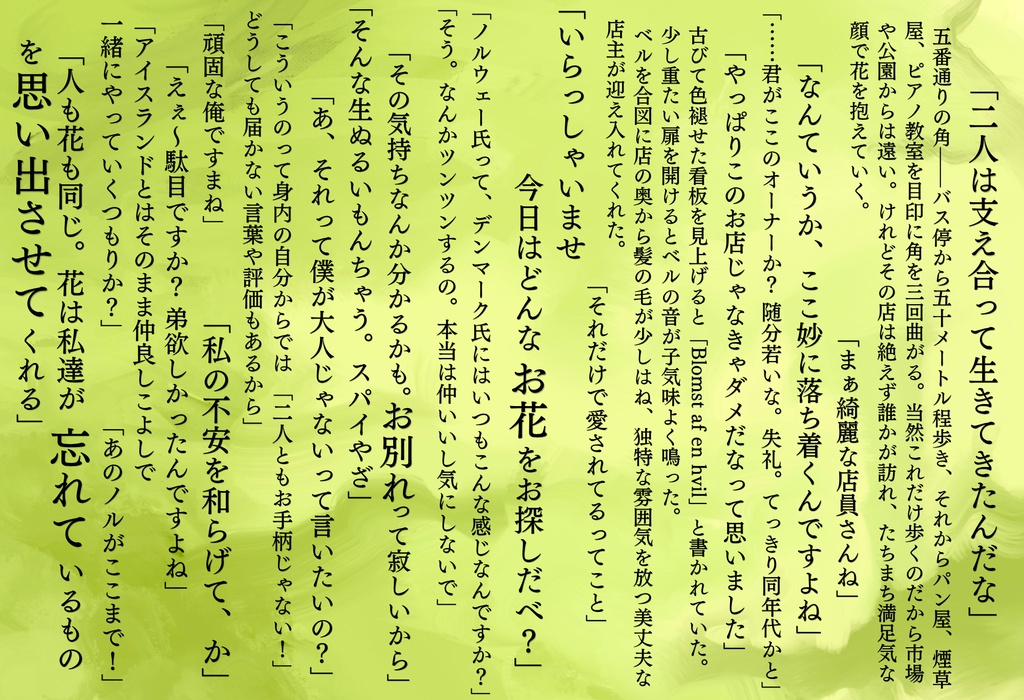 「二人は支え合って生きてきたんだな」
五番通りの角――バス停から五十メートル程歩き、それからパン屋、煙草
屋、ピアノ教室を目印に角を三回曲がる。当然これだけ歩くのだから市場
や公園からは遠い。けれどその店は絶えず誰かが訪れ、たちまち満足気な
顔で花を抱えていく。
「まぁ綺麗な店員さんね」
「なんていうか、ここ妙に落ち着くんですよね」
「……君がここのオーナーか？随分若いな。失礼。てっきり同年代かと」
「やっぱりこのお店じゃなきゃダメだなって思いました」
古びて色褪せた看板を見上げると「Blomst af en hvil」と書かれていた。
少し重たい扉を開けるとベルの音が子気味よく鳴った。
ベルを合図に店の奥から髪の毛が少しはね、独特な雰囲気を放つ美丈夫な
店主が迎え入れてくれた。
「それだけで愛されてるってこと」
「いらっしゃいませ
今日はどんなお花をお探しだべ？」
「ノルウェー氏って、デンマーク氏にはいつもこんな感じなんですか？」
「そう。なんかツンツンするの。本当は仲いいし気にしないで」
「その気持ちなんか分かるかも。お別れって寂しいから」
「そんな生ぬるいもんちゃう。スパイやざ」
「あ、それって僕が大人じゃないって言いたいの？」
「こういうのって身内の自分からでは「二人ともお手柄じゃない！」
どうしても届かない言葉や評価もあるから」
「頑固な俺ですまね」
「私の不安を和らげて、か」
「えぇ〜駄目ですか？弟欲しかったんですよね」
「アイスランドとはそのまま仲良しこよしで
一緒にやっていくつもりか？」
「あのノルがここまで！」
「人も花も同じ。花は私達が忘れているもの
を思い出させてくれる」